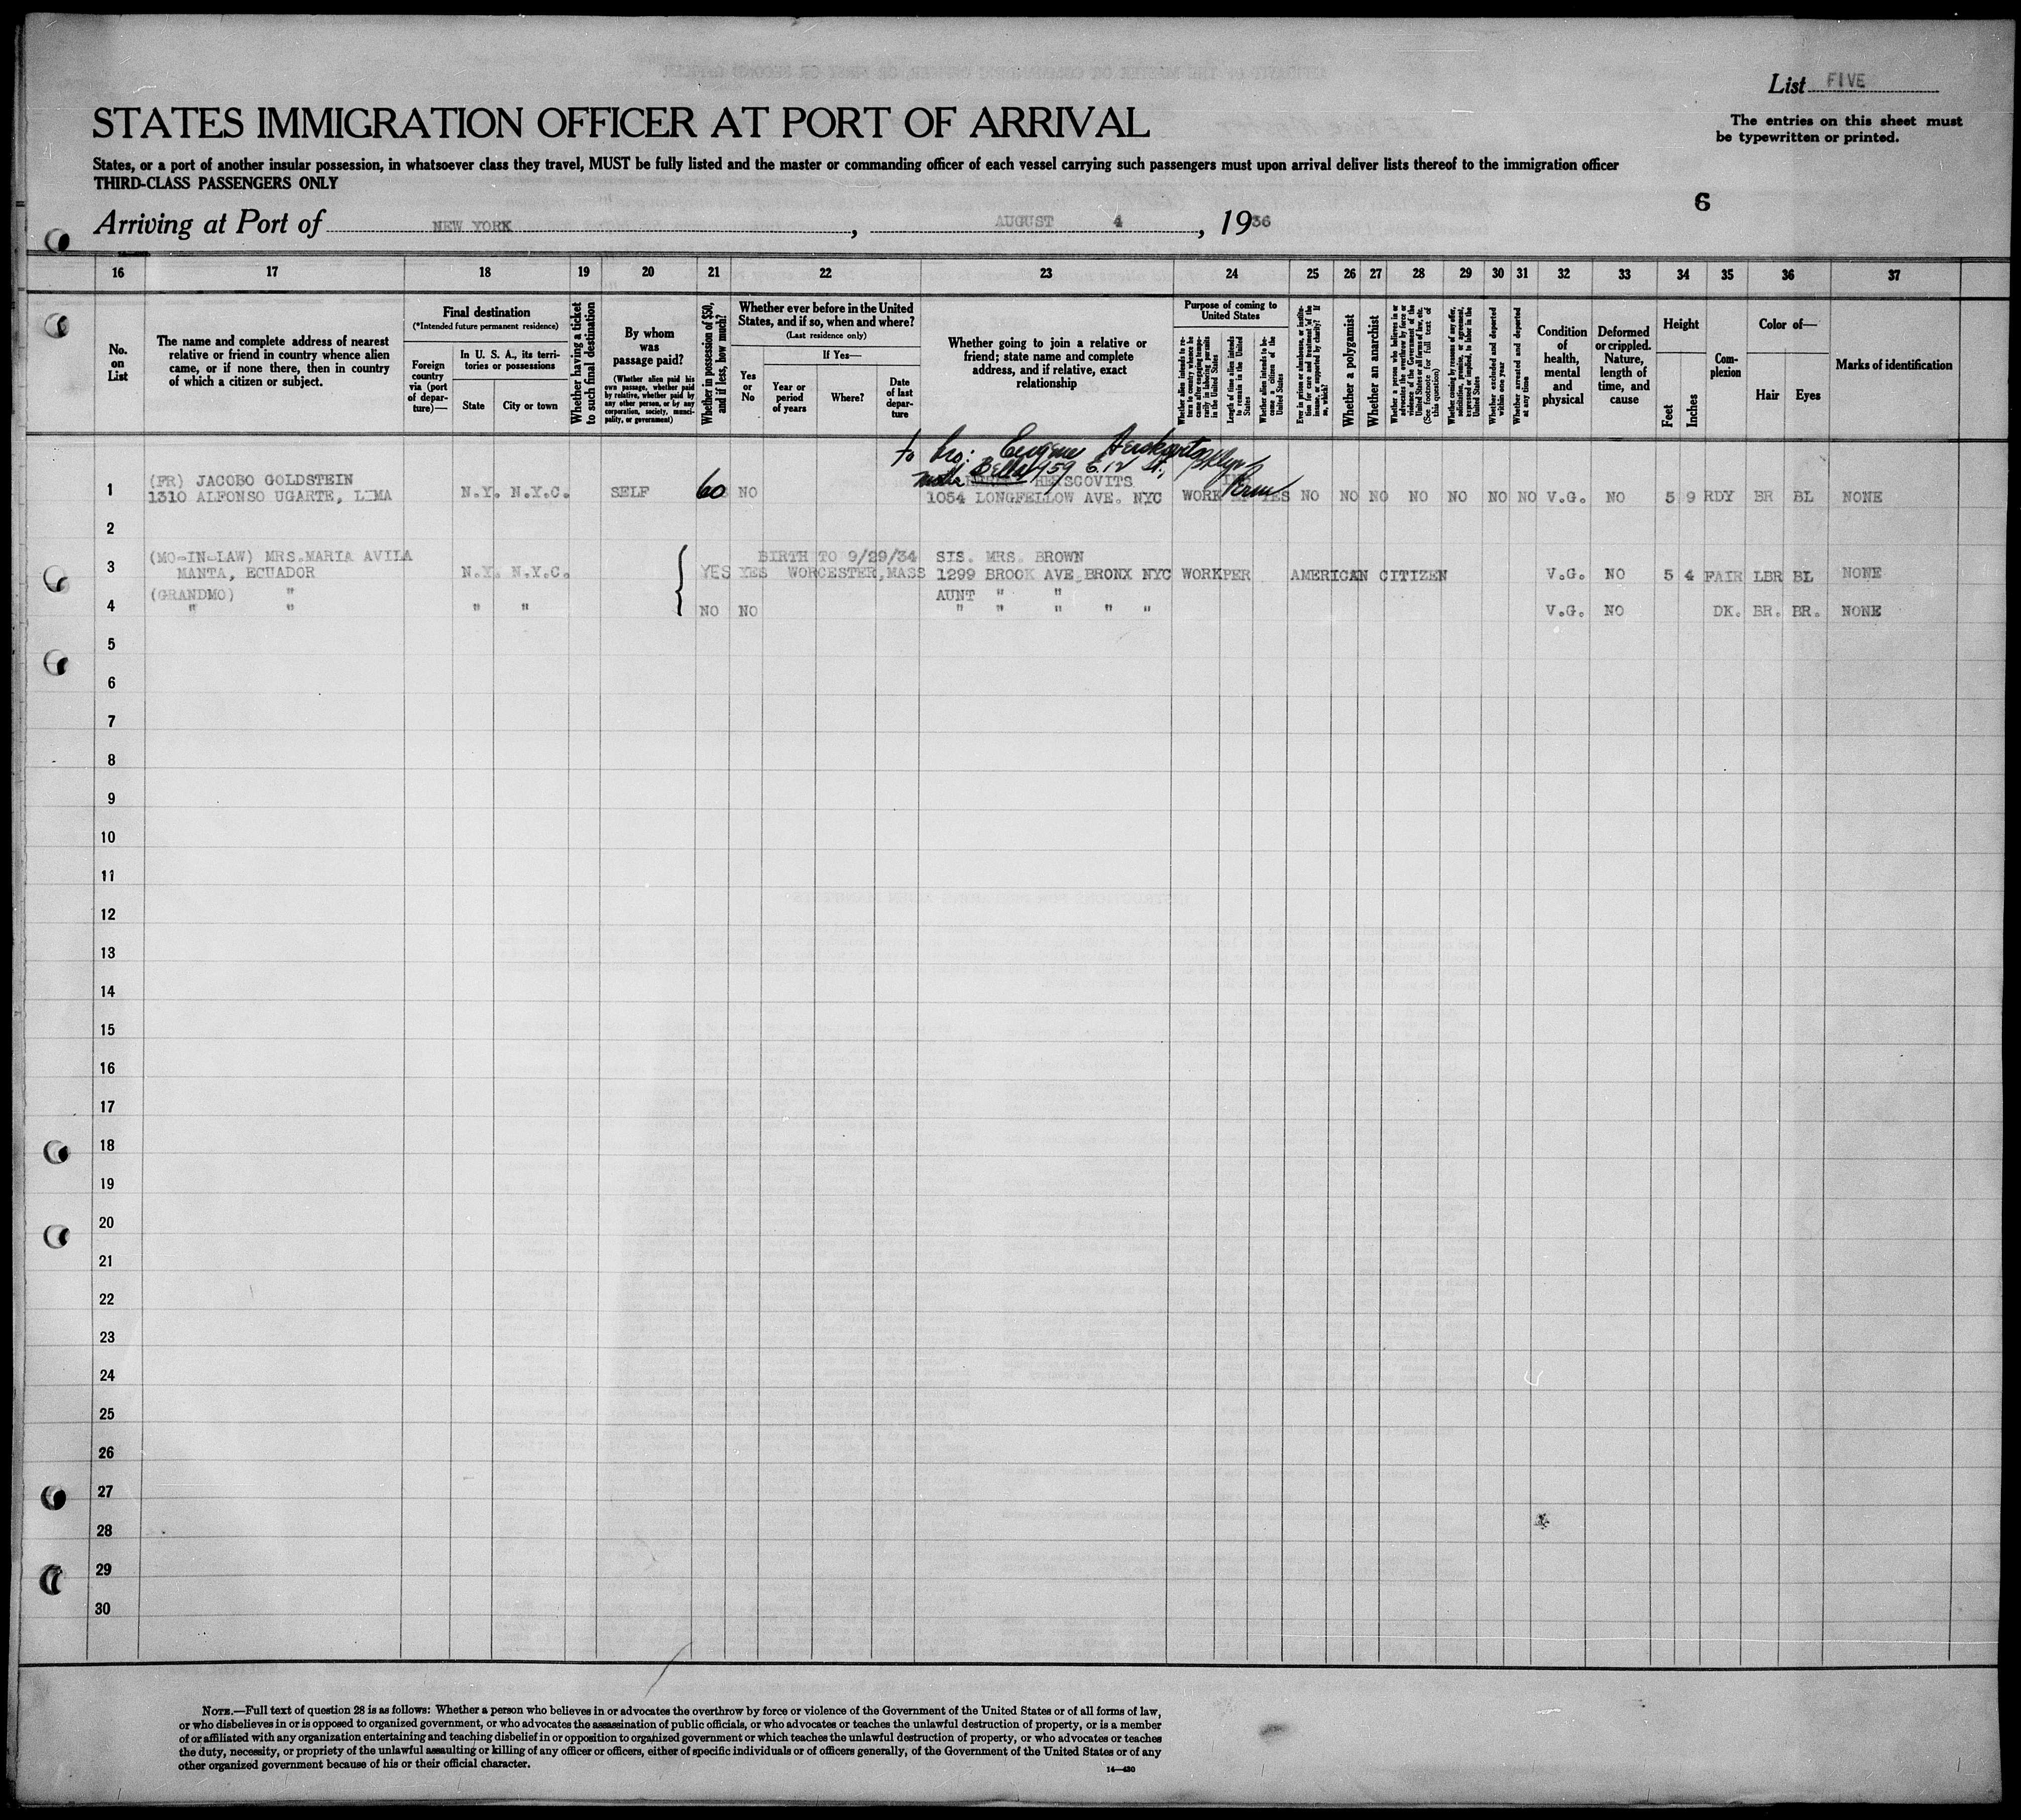 List FIVE
STATES IMMIGRATION OFFICER AT PORT OF ARRIVAL
The entries on this sheet must
be typewritten or printed.
States, or a port of another insular possession, in whatsoever class they travel, MUST be fully listed and the master or commanding officer of each vessel carrying such passengers must upon arrival deliver lists thereof to the immigration officer
THIRD-CLASS PASSENGERS ONLY
6
Arriving at Port of NEW YORK, AUGUST 4, 1936
16 17 18 19 20 21 22 23 24 25 26 27 28 29 30 31 32 33 34 35 36 37
No. on List
The name and complete address of nearest relative or friend in country whence alien came, or if none there, then in country of which a citizen or subject.
Final destination
(*Intended future permanent residence)
Foreign country via (port of departure)—
In U. S. A., its territories or possessions
State
City or town
Whether having a ticket to such final destination
By whom was passage paid?
(Whether alien paid his own passage, whether paid by relative, whether paid by any other person, or by any corporation, society, municipality, or government)
Whether in possession of $50, and if less, how much?
Whether ever before in the United States, and if so, when and where?
(Last residence only)
Yes or No
If Yes—
Year or period of years
Where?
Date of last departure
Whether going to join a relative or friend; state name and complete address, and if relative, exact relationship
Purpose of coming to United States
Whether alien intends to return to country whence he came after engaging temporarily in laboring pursuits in the United States
Length of time alien intends to remain in the United States
Whether alien intends to become a citizen of the United States
Ever in prison or almshouse, or institution for care and treatment of the insane, or supported by charity? If so, which?
Whether a polygamist
Whether an anarchist
Whether a person who believes in or advocates the overthrow by force or violence of the Government of the United States or all forms of law, etc. (See footnote for full text of this question)
Whether coming by reasons of any offer, solicitation, promise, or agreement, expressed or implied, to labor in the United States
Whether excluded and deported within one year
Whether arrested and deported at any time
Condition of health, mental and physical
Deformed or crippled. Nature, length of time, and cause
Height
Feet
Inches
Complexion
Color of—
Hair
Eyes
Marks of identification
to bro: Eugene
Bella 959 E. 12 St., Bklyn
1 (FR) JACOBO GOLDSTEIN HERSCOVITS Perm
1310 ALFONSO UGARTE, LIMA N.Y. N.Y.C. SELF 60 NO 1054 LONGFELLOW AVE. NYC WORK YES NO NO NO NO NO NO NO V.G. NO 5 9 RDY BR BL NONE
2
(MO-IN-LAW) MRS.MARIA AVILA BIRTH TO 9/29/34 SIS. MRS. BROWN
3 MANTA, ECUADOR N.Y. N.Y.C. YES YES WORCESTER,MASS 1299 BROOK AVE.BRONX NYC WORK PER AMERICAN CITIZEN V.G. NO 5 4 FAIR LBR BL NONE
(GRANDMO) " AUNT " "
4 " " " " NO NO " " " " " V.G. NO DK. BR. BR. NONE
5
6
7
8
9
10
11
12
13
14
15
16
17
18
19
20
21
22
23
24
25
26
27
28
29
30
NOTE.—Full text of question 28 is as follows: Whether a person who believes in or advocates the overthrow by force or violence of the Government of the United States or of all forms of law,
or who disbelieves in or is opposed to organized government, or who advocates the assassination of public officials, or who advocates or teaches the unlawful destruction of property, or is a member
of or affiliated with any organization entertaining and teaching disbelief in or opposition to organized government or which teaches the unlawful destruction of property, or who advocates or teaches
the duty, necessity, or propriety of the unlawful assaulting or killing of any officer or officers, either of specific individuals or of officers generally, of the Government of the United States or of any
other organized government because of his or their official character.
14—430